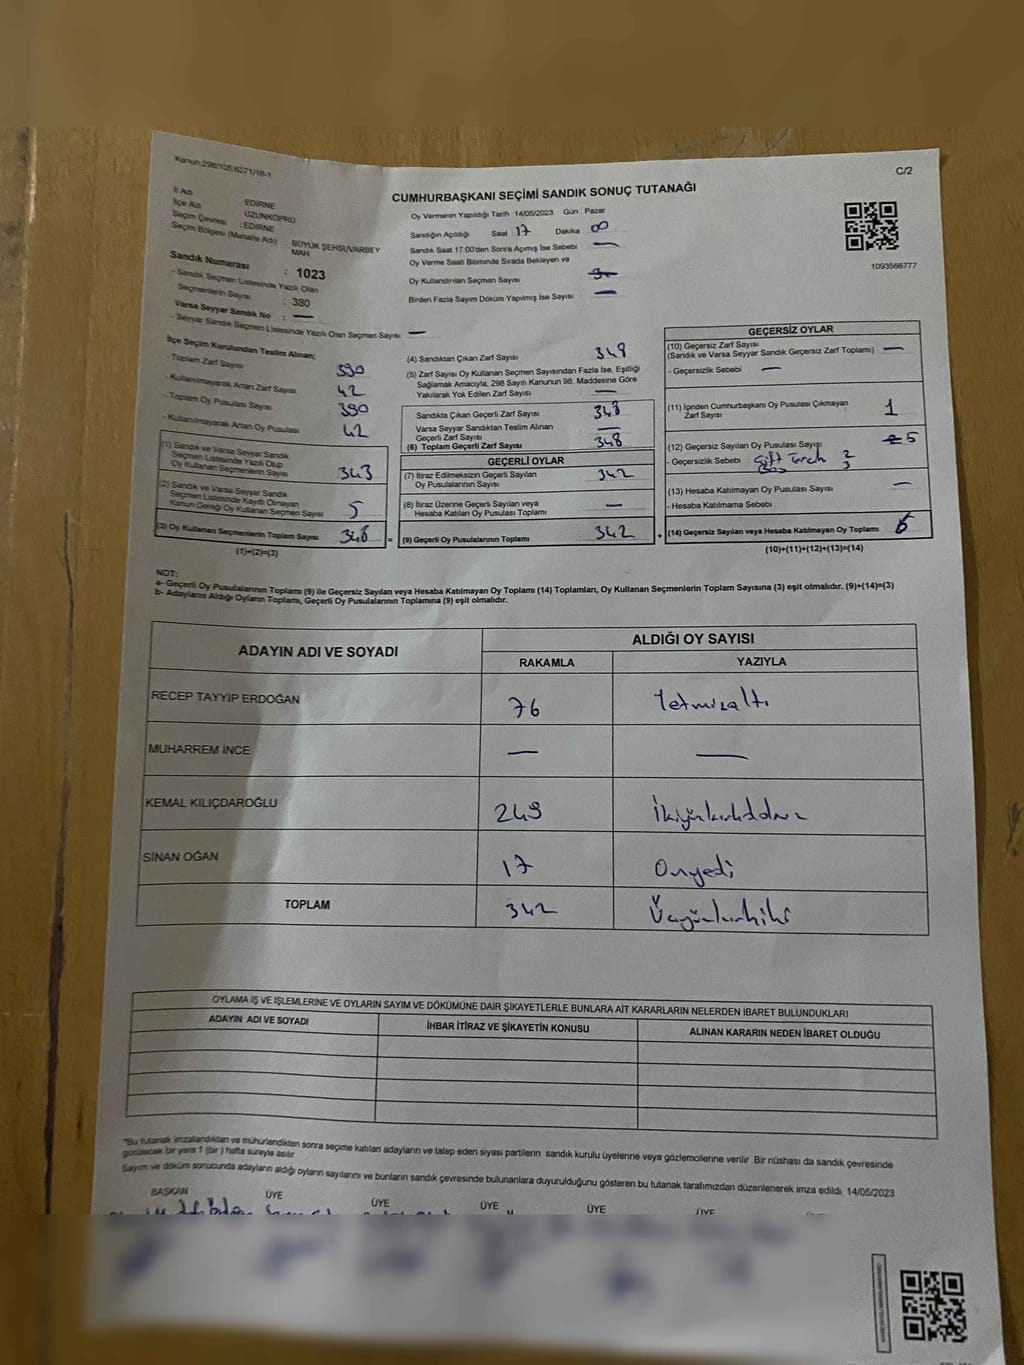 Kanun:298/105;6271/18-1
C/2
CUMHURBAŞKANI SEÇİMİ SANDIK SONUÇ TUTANAĞI
İl Adı EDİRNE
İlçe Adı UZUNKÖPRÜ
Seçim Çevresi : EDİRNE
Seçim Bölgesi (Mahalle Adı) BÜYÜK ŞEHSUVARBEY MAH
Sandık Numarası : 1023
- Sandık Seçmen Listesinde Yazılı Olan
Seçmenlerin Sayısı : 380
Varsa Seyyar Sandık No : —
- Seyyar Sandık Seçmen Listesinde Yazılı Olan Seçmen Sayısı : —
Oy Vermenin Yapıldığı Tarih : 14/05/2023 Gün : Pazar
Sandığın Açıldığı Saat 17 Dakika 00
Sandık Saat 17:00'den Sonra Açılmış İse Sebebi —
Oy Verme Saati Bitiminde Sırada Bekleyen ve
Oy Kullandırılan Seçmen Sayısı
Birden Fazla Sayım Döküm Yapılmış İse Sayısı —
1093566777
İlçe Seçim Kurulundan Teslim Alınan;
Toplam Zarf Sayısı 390
- Kullanılmayarak Artan Zarf Sayısı 42
- Toplam Oy Pusulası Sayısı 390
- Kullanılmayarak Artan Oy Pusulası 42
(1) Sandık ve Varsa Seyyar Sandık
Seçmen Listesinde Yazılı Olup
Oy Kullanan Seçmenlerin Sayısı 343
(2) Sandık ve Varsa Seyyar Sandık
Seçmen Listesinde Kaydı Olmayan
Kanun Gereği Oy Kullanan Seçmen Sayısı 5
(3) Oy Kullanan Seçmenlerin Toplam Sayısı 348 =
(1)+(2)=(3)
(4) Sandıktan Çıkan Zarf Sayısı 348
(5) Zarf Sayısı Oy Kullanan Seçmen Sayısından Fazla İse, Eşitliği
Sağlamak Amacıyla, 298 Sayılı Kanunun 98. Maddesine Göre
Yakılarak Yok Edilen Zarf Sayısı —
Sandıkta Çıkan Geçerli Zarf Sayısı 348
Varsa Seyyar Sandıktan Teslim Alınan
Geçerli Zarf Sayısı —
(6) Toplam Geçerli Zarf Sayısı 348
GEÇERLİ OYLAR
(7) İtiraz Edilmeksizin Geçerli Sayılan
Oy Pusulalarının Sayısı 342
(8) İtiraz Üzerine Geçerli Sayılan veya
Hesaba Katılan Oy Pusulası Toplamı —
(9) Geçerli Oy Pusulalarının Toplamı 342 +
GEÇERSİZ OYLAR
(10) Geçersiz Zarf Sayısı
(Sandık ve Varsa Seyyar Sandık Geçersiz Zarf Toplamı) —
- Geçersizlik Sebebi —
(11) İçinden Cumhurbaşkanı Oy Pusulası Çıkmayan
Zarf Sayısı 1
(12) Geçersiz Sayılan Oy Pusulası Sayısı 5
- Geçersizlik Sebebi Çift Tercih 2
3
(13) Hesaba Katılmayan Oy Pusulası Sayısı —
- Hesaba Katılmama Sebebi
(14) Geçersiz Sayılan veya Hesaba Katılmayan Oy Toplamı 6
(10)+(11)+(12)+(13)=(14)
NOT:
a- Geçerli Oy Pusulalarının Toplamı (9) ile Geçersiz Sayılan veya Hesaba Katılmayan Oy Toplamı (14) Toplamları, Oy Kullanan Seçmenlerin Toplam Sayısına (3) eşit olmalıdır. (9)+(14)=(3)
b- Adayların Aldığı Oyların Toplamı, Geçerli Oy Pusulalarının Toplamına (9) eşit olmalıdır.
ADAYIN ADI VE SOYADI ALDIĞI OY SAYISI
RAKAMLA YAZIYLA
RECEP TAYYİP ERDOĞAN 76 Yetmişaltı
MUHARREM İNCE — —
KEMAL KILIÇDAROĞLU 249 İkiyüzkırkdokuz
SİNAN OĞAN 17 Onyedi
TOPLAM 342 Üçyüzkırkiki
OYLAMA İŞ VE İŞLEMLERİNE VE OYLARIN SAYIM VE DÖKÜMÜNE DAİR ŞİKAYETLERLE BUNLARA AİT KARARLARIN NELERDEN İBARET BULUNDUKLARI
ADAYIN ADI VE SOYADI İHBAR İTİRAZ VE ŞİKAYETİN KONUSU ALINAN KARARIN NEDEN İBARET OLDUĞU
"Bu tutanak imzalandıktan ve mühürlendikten sonra seçime katılan adayların ve talep eden siyasi partilerin sandık kurulu üyelerine veya gözlemcilerine verilir. Bir nüshası da sandık çevresinde
görülecek bir yere 1 (bir ) hafta süreyle asılır.
Sayım ve döküm sonucunda adayların aldığı oyların sayılarını ve bunların sandık çevresinde bulunanlara duyurulduğunu gösteren bu tutanak tarafımızdan düzenlenerek imza edildi. 14/05/2023
BAŞKAN ÜYE ÜYE ÜYE ÜYE ÜYE